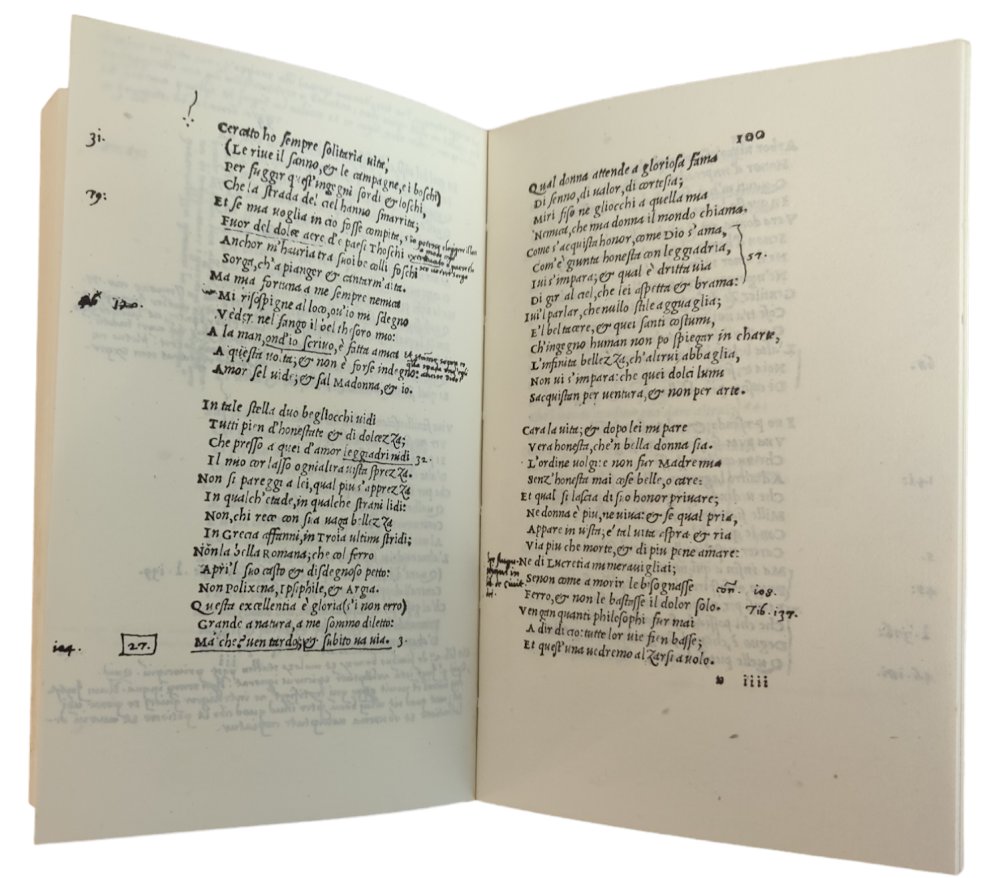 31.
Cercato ho sempre solitaria uita,
(Le riue il sanno, & le campagne, e i boschi)
Per fuggir quest'ingegni sordi & loschi,
Che la strada del ciel hanno smarrita;
79:
Et se mia uoglia in cio fosse compita,
Fuor del dolce aere d'e paesi Thoschi
Anchor m'hauria tra suoi be colli foschi
Sorga, ch'a pianger & cantar m'aita.
Ma mia fortuna a me sempre nemica
Mi risospigne al loco, ou'io mi sdegno
Veder nel fango il bel thesoro mio:
A la man, ond'io scriuo, è fatta amica
A questa uolta; & non è forse indegno:
Amor sel uide; & sal Madonna, & io.
In tale stella duo begliocchi uidi
Tutti pien d'honestate & di dolcezza;
Che presso a quei d'amor leggiadri nidi 32.
Il mio cor lasso ognialtra uista sprezza.
Non si pareggi a lei, qual piu s'apprezza
In qualch'etade, in qualche strani lidi:
Non, chi reco con sua uaga bellezza
In Grecia affanni, in Troia ultimi stridi;
Non la bella Romana; che col ferro
Apri'l suo casto & disdegnoso petto:
Non Polixena, Ipsiphile, & Argia.
Questa excellentia è gloria (s'i non erro)
Grande a natura, a me sommo diletto:
27. Ma che? uen tardo; & subito ua uia. 3.
100
Qual donna attende a gloriosa fama
Di senno, di ualor, di cortesia;
Miri fiso ne gliocchi a quella mia
Nemica, che mia donna il mondo chiama.
Come s'acquista honor, come Dio s'ama,
Com'è giunta honesta con leggiadria,
57.
Iui s'impara; & qual è dritta uia
Di gir al ciel, che lei aspetta & brama:
Iui'l parlar, che nullo stile agguaglia;
E'l bel tacere, & quei santi costumi,
Ch'ingegno human non po spiegar in charte,
L'infinita bellezza, ch'altrui abbaglia,
Non ui s'impara: che quei dolci lumi
S'acquistan per uentura, & non per arte.
Cara la uita; & dopo lei mi pare
Vera honesta, che'n bella donna sia.
L'ordine uolgi: e non fur Madre mia
Senz'honesta mai cose belle, o care:
Et qual si lascia di suo honor priuare;
Ne donna è piu, ne uiua: & se qual pria,
Appare in uista; e' tal uita aspra & ria
Via piu che morte, & di piu pene amare:
Ne di Lucretia mi merauigliai;
Senon come a morir le bisognasse
108.
Ferro, & non le bastasse il dolor solo.
Tib. 137.
Vengan quanti philosophi fur mai
A dir di cio: tutte lor uie fien basse;
Et quest'una uedremo alzarsi a uolo.
iiii